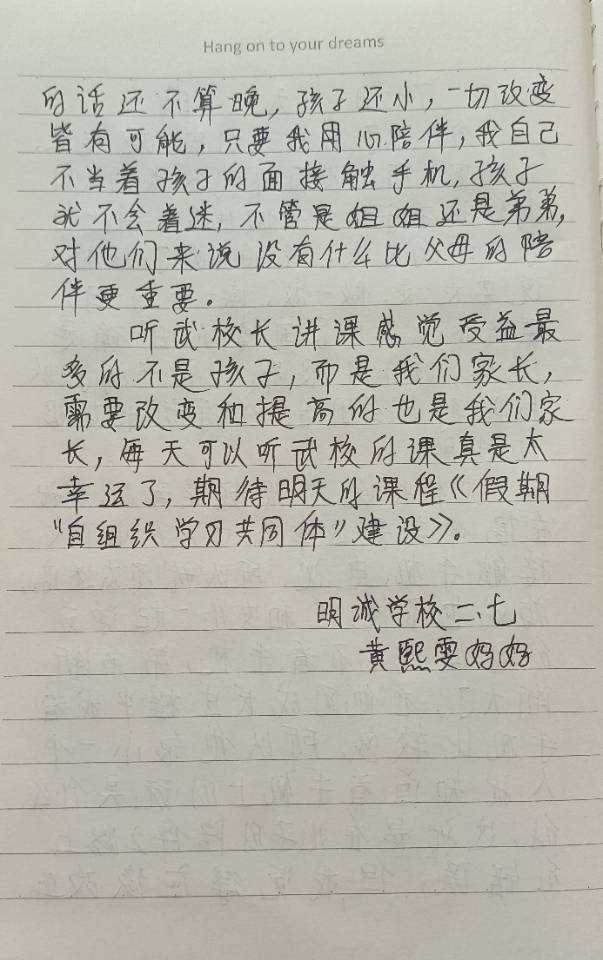 Hang on to your dreams
的话还不算晚，孩子还小，一切改变
皆有可能，只要我用心陪伴，我自己
不当着孩子的面接触手机，孩子
就不会着迷，不管是姐姐还是弟弟，
对他们来说没有什么比父母的陪
伴更重要。
听武校长讲课感觉受益最
多的不是孩子，而是我们家长，
需要改变和提高的也是我们家
长，每天可以听武校的课真是太
幸运了，期待明天的课程《假期
“自组织学习共同体”建设》。
明诚学校二、七
黄熙雯妈妈